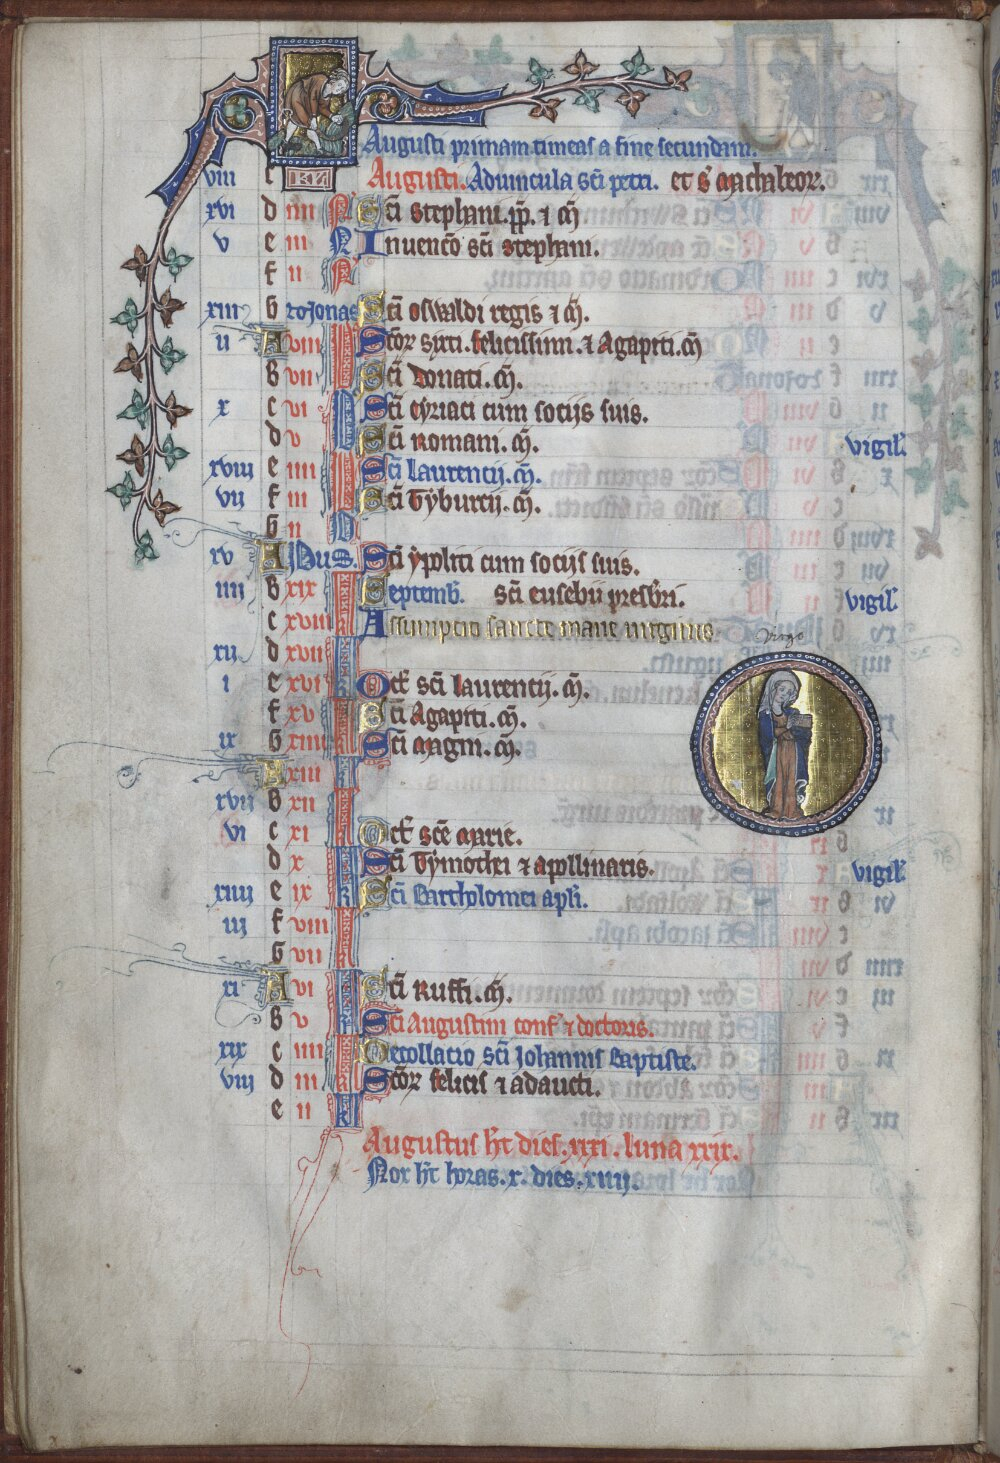 Augusti primam timeas a fine secundam.
viii c KL Augusti. Aduincula sci petri. et s machabeor.
xvi d iiii N Sci stephani. pp. ⁊ m̄
v e iii N Inuencō sci stephani.
f ii N
xiii G ro Nonas Sci oswaldi regis ⁊ m̄.
ii A viii Scor sixti. felicissimi. ⁊ Agapiti. m̄
B vii Sci Donati. m̄.
x c vi Sci cyriaci cum socijs suis.
d v Sci Romani. m̄. vigil'
xviii e iiii Sci Laurentij. m̄.
vii f iii Sci Tyburcij. m̄.
G ii
xv A IDus. Sci ypoliti cum socijs suis.
iiii B xix Septemb'. sci eusebii presbri. vigil'
c xviii Assumptio sancte marie uirginis
xii d xvii virgo
i e xvi Oct' sci laurentij. m̄.
f xv Sci Agapiti. m̄.
ix G xiiii Sci magni. m̄.
A xiii
xvii B xii
vi c xi Oct' sce marie.
d x Sci Tymothei ⁊ apollinaris. vigil'
xiiii e ix Sci Bartholomei apli.
iii f viii
G vii
xi A vi Sci Ruffi. m̄.
B v Sci Augustini conf' ⁊ doctoris.
xix c iiii Decollatio sci Johannis Baptiste.
viii d iii Scor felicis ⁊ adaucti.
e ii
Augustus ht dies. xxxi. luna xxix.
Nox ht horas. x. dies. xiiij.